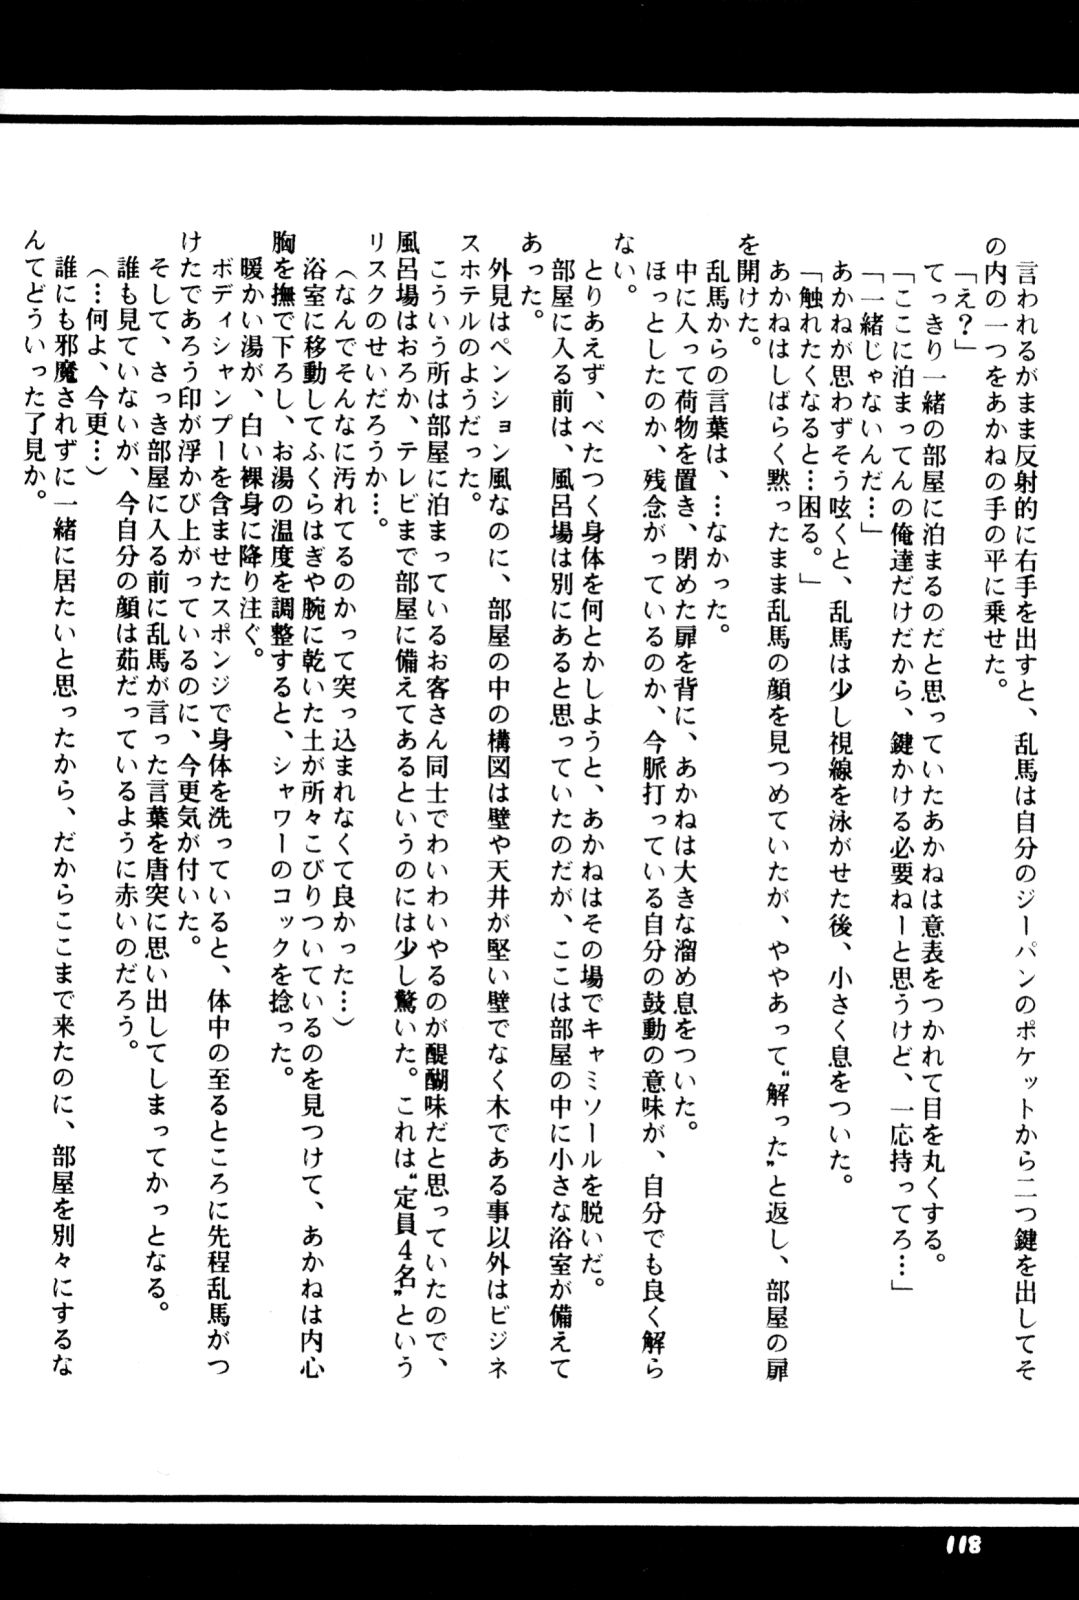 言われるがまま反射的に右手を出すと、乱馬は自分のジーパンのポケットから二つ鍵を出してそ
の内の一つをあかねの手の平に乗せた。
「え？」
　てっきり一緒の部屋に泊まるのだと思っていたあかねは意表をつかれて目を丸くする。
「ここに泊まってんの俺達だけだから、鍵かける必要ねーと思うけど、一応持ってろ…」
「一緒じゃないんだ…」
　あかねが思わずそう呟くと、乱馬は少し視線を泳がせた後、小さく息をついた。
「触れたくなると…困る。」
　あかねはしばらく黙ったまま乱馬の顔を見つめていたが、ややあって“解った”と返し、部屋の扉
を開けた。
　乱馬からの言葉は、…なかった。
　中に入って荷物を置き、閉めた扉を背に、あかねは大きな溜め息をついた。
　ほっとしたのか、残念がっているのか、今脈打っている自分の鼓動の意味が、自分でも良く解ら
ない。
　とりあえず、べたつく身体を何とかしようと、あかねはその場でキャミソールを脱いだ。
　部屋に入る前は、風呂場は別にあると思っていたのだが、ここは部屋の中に小さな浴室が備えて
あった。
　外見はペンション風なのに、部屋の中の構図は壁や天井が堅い壁でなく木である事以外はビジネ
スホテルのようだった。
　こういう所は部屋に泊まっているお客さん同士でわいわいやるのが醍醐味だと思っていたので、
風呂場はおろか、テレビまで部屋に備えてあるというのには少し驚いた。これは“定員４名”という
リスクのせいだろうか…。
（なんでそんなに汚れてるのかって突っ込まれなくて良かった…）
　浴室に移動してふくらはぎや腕に乾いた土が所々こびりついているのを見つけて、あかねは内心
胸を撫で下ろし、お湯の温度を調整すると、シャワーのコックを捻った。
　暖かい湯が、白い裸身に降り注ぐ。
　ボディシャンプーを含ませたスポンジで身体を洗っていると、体中の至るところに先程乱馬がつ
けたであろう印が浮かび上がっているのに、今更気が付いた。
　そして、さっき部屋に入る前に乱馬が言った言葉を唐突に思い出してしまってかっとなる。
　誰も見ていないが、今自分の顔は茹だっているように赤いのだろう。
（…何よ、今更…）
　誰にも邪魔されずに一緒に居たいと思ったから、だからここまで来たのに、部屋を別々にするな
んてどういった了見か。
118